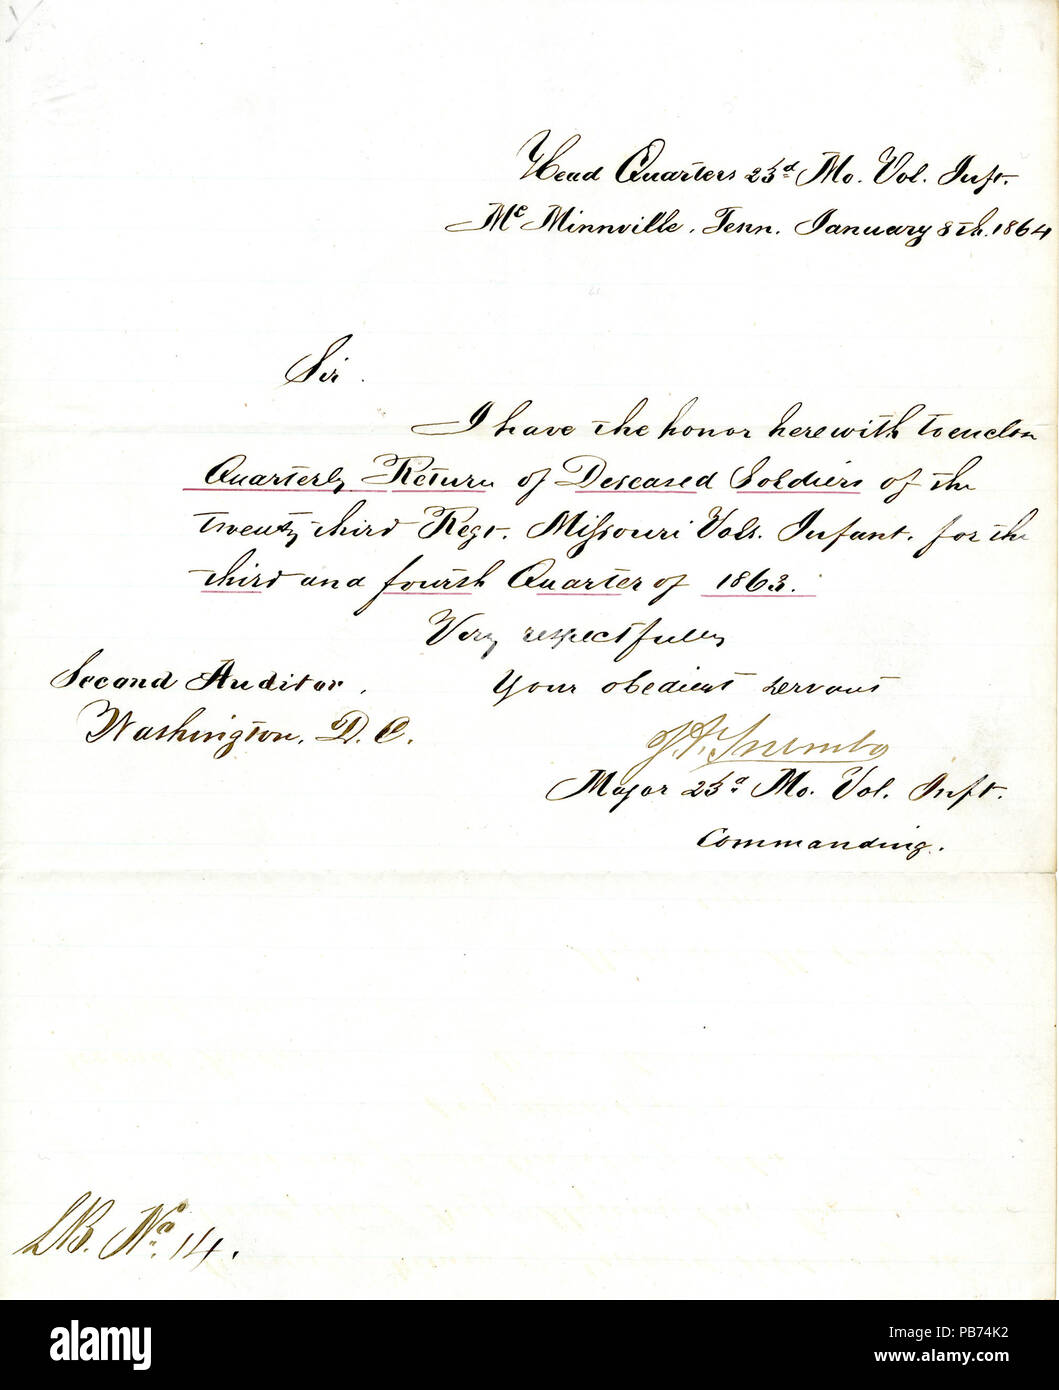 Head Quarters 23d Mo. Vol. Inft.
Mc Minnville, Tenn. January 8th. 1864
Sir.
I have the honor herewith to enclose
Quarterly Return of Deseased Soldiers of the
twenty third Regt. Missouri Vols. Infant. for the
third and fourth Quarter of 1863.
Very respectfully
Your obedient servant
Second Auditor.
Washington, D. C.
J. A. Trumbo
Major 23d Mo. Vol. Inft.
Commanding.
LB. No. 14.
alamy
Image ID: PB74K2
www.alamy.com